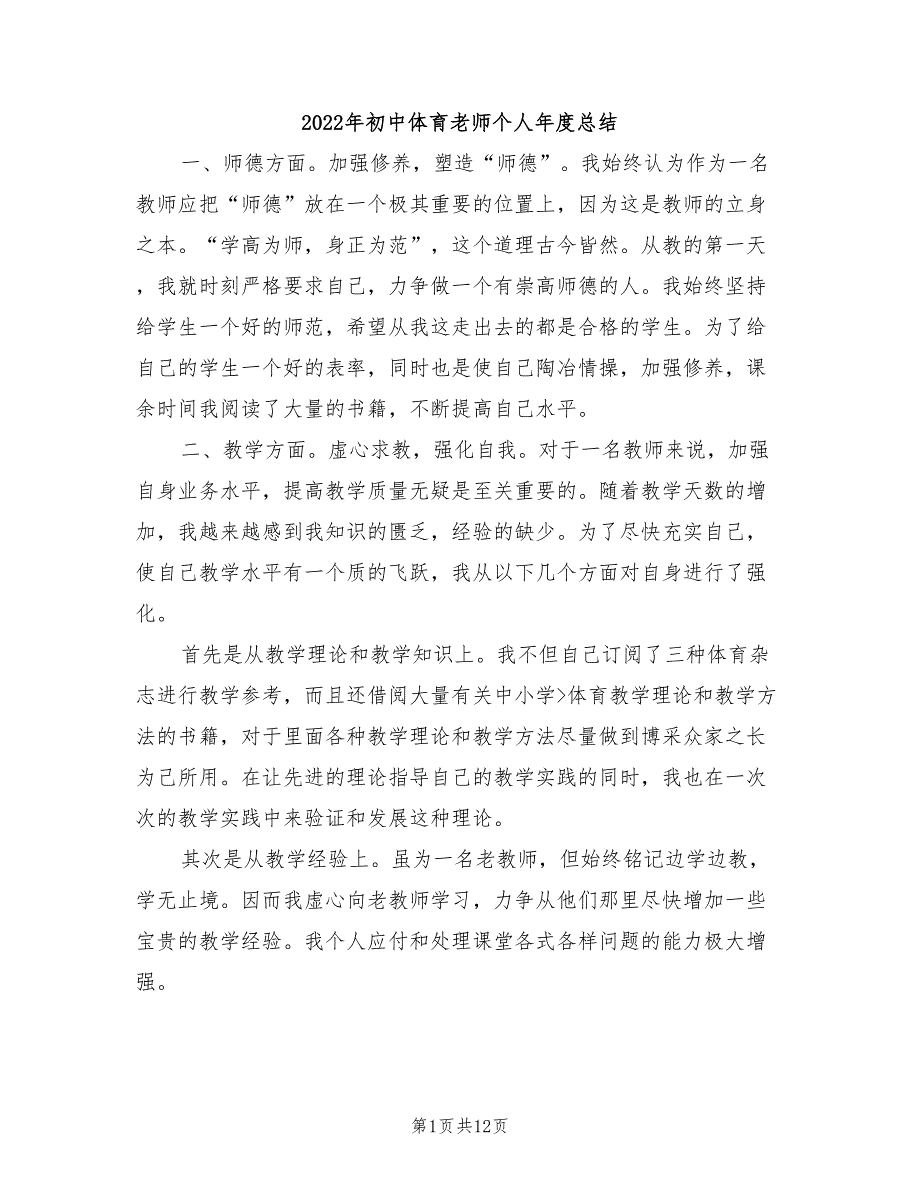 2022年初中体育老师个人年度总结
一、师德方面。加强修养，塑造“师德”。我始终认为作为一名
教师应把“师德”放在一个极其重要的位置上，因为这是教师的立身
之本。“学高为师，身正为范”，这个道理古今皆然。从教的第一天
，我就时刻严格要求自己，力争做一个有崇高师德的人。我始终坚持
给学生一个好的师范，希望从我这走出去的都是合格的学生。为了给
自己的学生一个好的表率，同时也是使自己陶冶情操，加强修养，课
余时间我阅读了大量的书籍，不断提高自己水平。
二、教学方面。虚心求教，强化自我。对于一名教师来说，加强
自身业务水平，提高教学质量无疑是至关重要的。随着教学天数的增
加，我越来越感到我知识的匮乏，经验的缺少。为了尽快充实自己，
使自己教学水平有一个质的飞跃，我从以下几个方面对自身进行了强
化。
首先是从教学理论和教学知识上。我不但自己订阅了三种体育杂
志进行教学参考，而且还借阅大量有关中小学>体育教学理论和教学方
法的书籍，对于里面各种教学理论和教学方法尽量做到博采众家之长
为己所用。在让先进的理论指导自己的教学实践的同时，我也在一次
次的教学实践中来验证和发展这种理论。
其次是从教学经验上。虽为一名老教师，但始终铭记边学边教，
学无止境。因而我虚心向老教师学习，力争从他们那里尽快增加一些
宝贵的教学经验。我个人应付和处理课堂各式各样问题的能力极大增
强。
第1页共12页